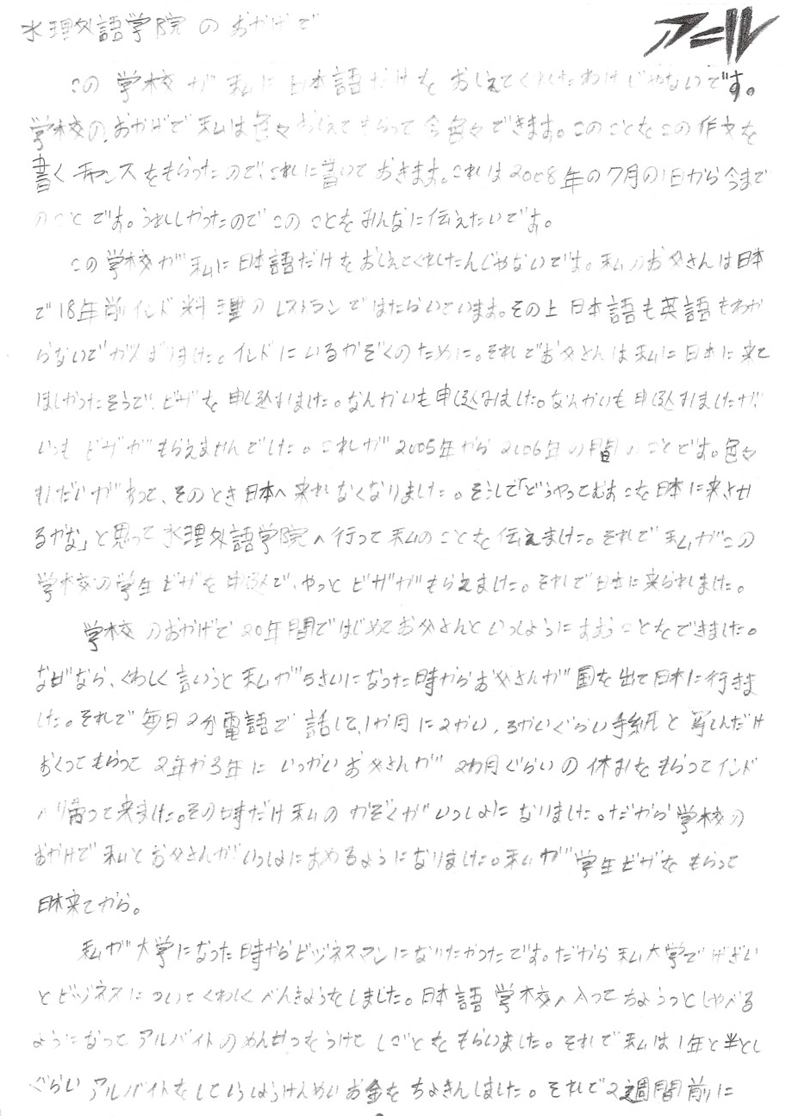 水理外語学院のおかげで
アニル
この学校が私に日本語だけをおしえてくれたわけじゃないです。
学校の、おかげで私は色々おしえてもらって今色々できます。このことをこの作文を
書くチャンスをもらったので、これに書いておきます。これは2008年の7月の1日から今まで
のことです。うれしかったのでこのことをみんなに伝えたいです。
この学校が私に日本語だけをおしえてくれたんじゃないです。私のお父さんは日本
で18年前インド料理のレストランではたらいています。その上日本語も英語もわか
らないでがんばりました。インドにいるかぞくのために。それでお父さんは私に日本に来て
ほしかったそうで、ビザを申し込みました。なんかいも申し込みました。なんかいも申し込みましたが
いつもビザがもらえませんでした。これが2005年から2006年の間のことです。色々
もんだいがあって、そのとき日本へ来れなくなりました。そうして「どうやってむすこを日本に来させ
るかな」と思って水理外語学院へ行って私のことを伝えました。それで私がこの
学校の学生ビザを申込で、やっとビザがもらえました。それで日本に来られました。
学校のおかげで20年間ではじめてお父さんといっしょうにすむことをできました。
なぜなら、くわしく言いうと私が5さいになった時からお父さんが国を出て日本に行きま
した。それで毎日2分電話で話して、1か月に2かい、3かいぐらい手紙と写しんだけ
おくってもらって2年か3年にいっかいお父さんが2か月ぐらいの休みをもらってインド
へ帰って来ました。その時だけ私のかぞくがいっしょになりました。だから学校の
おかげで私とお父さんがいっしょにすめるようになりました。私が学生ビザをもらって
日本来てから。
私が大学になった時からビジネスマンになりたかったです。だから私大学でけざい
とビジネスについてくわしくべんきょうをしました。日本語学校へ入ってちょうっとしゃべる
ようになってアルバイトのめんせつをうけてしごとをもらいました。それで私は1年と半とし
ぐらいアルバイトをしていっしょうけんめいお金をちょきんしました。それで2週間前に